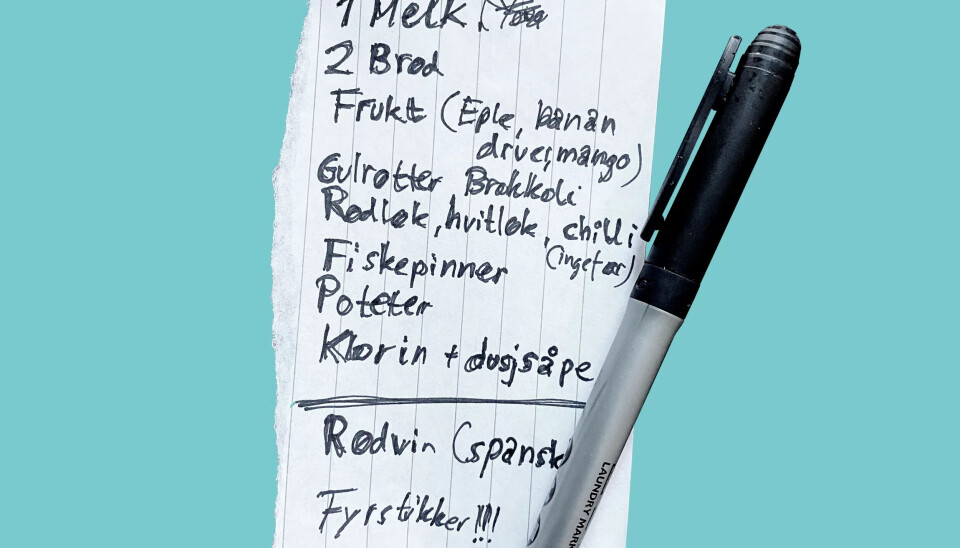 1 Melk,
2 Brød
Frukt (Eple, banan
druer, mango)
Gulrøtter Brokkoli
Rødløk, hvitløk, chilli
(ingefær)
Fiskepinner
Poteter
Klorin + dusjsåpe
Rødvin (spansk
Fyrstikker!!!
LAUNDRY MARK